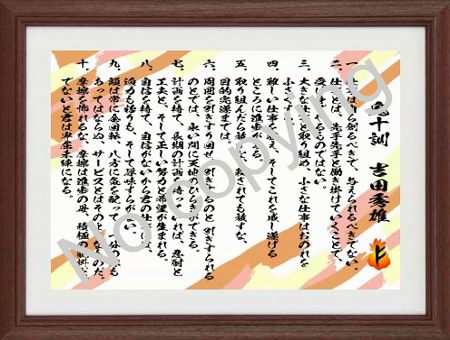 鬼十訓　吉田秀雄
一、仕事は自ら創るべきで、与えられるべきでない。
二、仕事とは、先手先手と働き掛けていくことで、
受け身でやるものではない。
三、大きな仕事と取り組め、小さな仕事はおのれを
小さくする。
四、難しい仕事を狙え、そしてこれを成し遂げる
ところに進歩がある。
五、取り組んだら放すな、殺されても放すな、
目的完遂までは
六、周囲を引きずり回せ、引きずるのと引きずられる
のとでは、永い間に天地のひらきができる。
七、計画を持て、長期の計画を持っていれば、忍耐と
工夫と、そして正しい努力と希望が生まれる。
八、自信を持て、自信がないから君の仕事には、
迫力も粘りも、そして厚味すらがない。
九、頭は常に全回転、八方に気を配って、一分の隙も
あってはならぬ、サービスとはそのようなものだ。
十、摩擦を怖れるな、摩擦は進歩の母、積極の肥料だ、
でないと君は卑屈未練になる。
No Copying